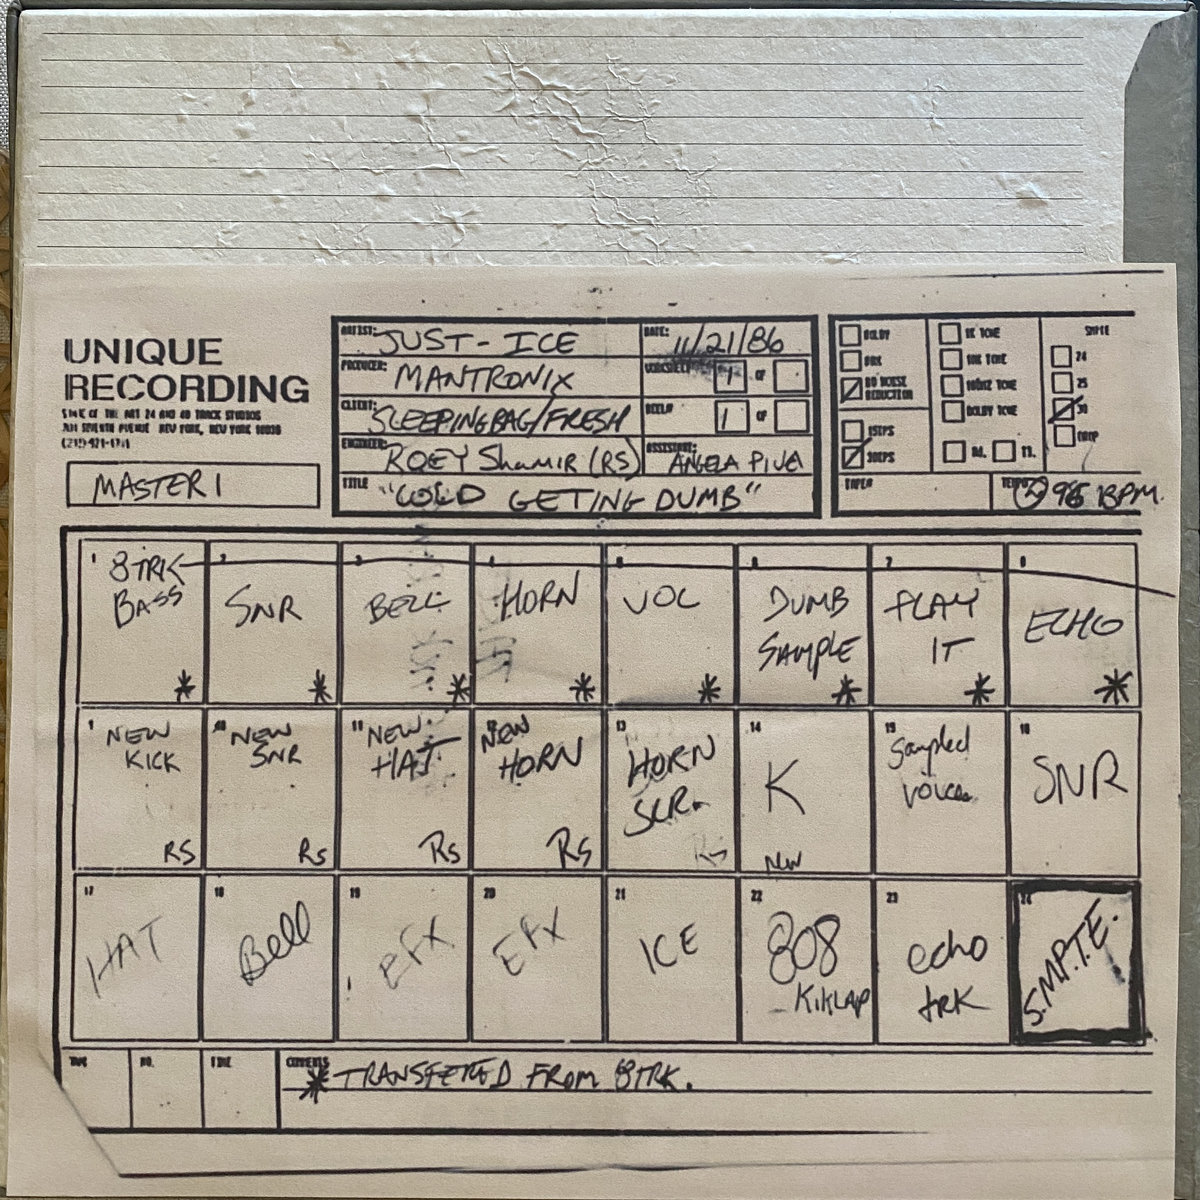 UNIQUE
RECORDING
STATE OF THE ART 24 AND 48 TRACK STUDIOS
701 SEVENTH AVENUE NEW YORK, NEW YORK 10036
MASTER 1
ARTIST: JUST-ICE
DATE: 11/21/86
PRODUCER: MANTRONIX
WORKSHEET 1 OF
CLIENT: SLEEPINGBAG/FRESH
REEL# 1 OF
ENGINEER: ROEY Shamir (RS)
ASSISTANT: ANGELA PIVA
TITLE "COLD GETING DUMB"
DOLBY
DBX
NO NOISE REDUCTION
15IPS
30IPS
1K TONE
10K TONE
100HZ TONE
DOLBY TONE
HD. TL.
SMPTE
24
25
30
DROP
TAPE#
TEMPO 96 BPM.
1 8TRK BASS *
2 SNR *
3 BELL *
4 HORN *
5 VOC *
6 DUMB SAMPLE *
7 PLAY IT *
8 ECHO *
9 NEW KICK RS
10 NEW SNR RS
11 NEW HAT RS
12 NEW HORN RS
13 HORN SCR. RS
14 K NEW
15 Sampled voice
16 SNR
17 HAT
18 Bell
19 EFX
20 EFX
21 ICE
22 808 KIKLAP
23 echo tRK
24 S.M.P.T.E.
NO.
TIME
COMMENTS
* TRANSFERED FROM 8TRK.